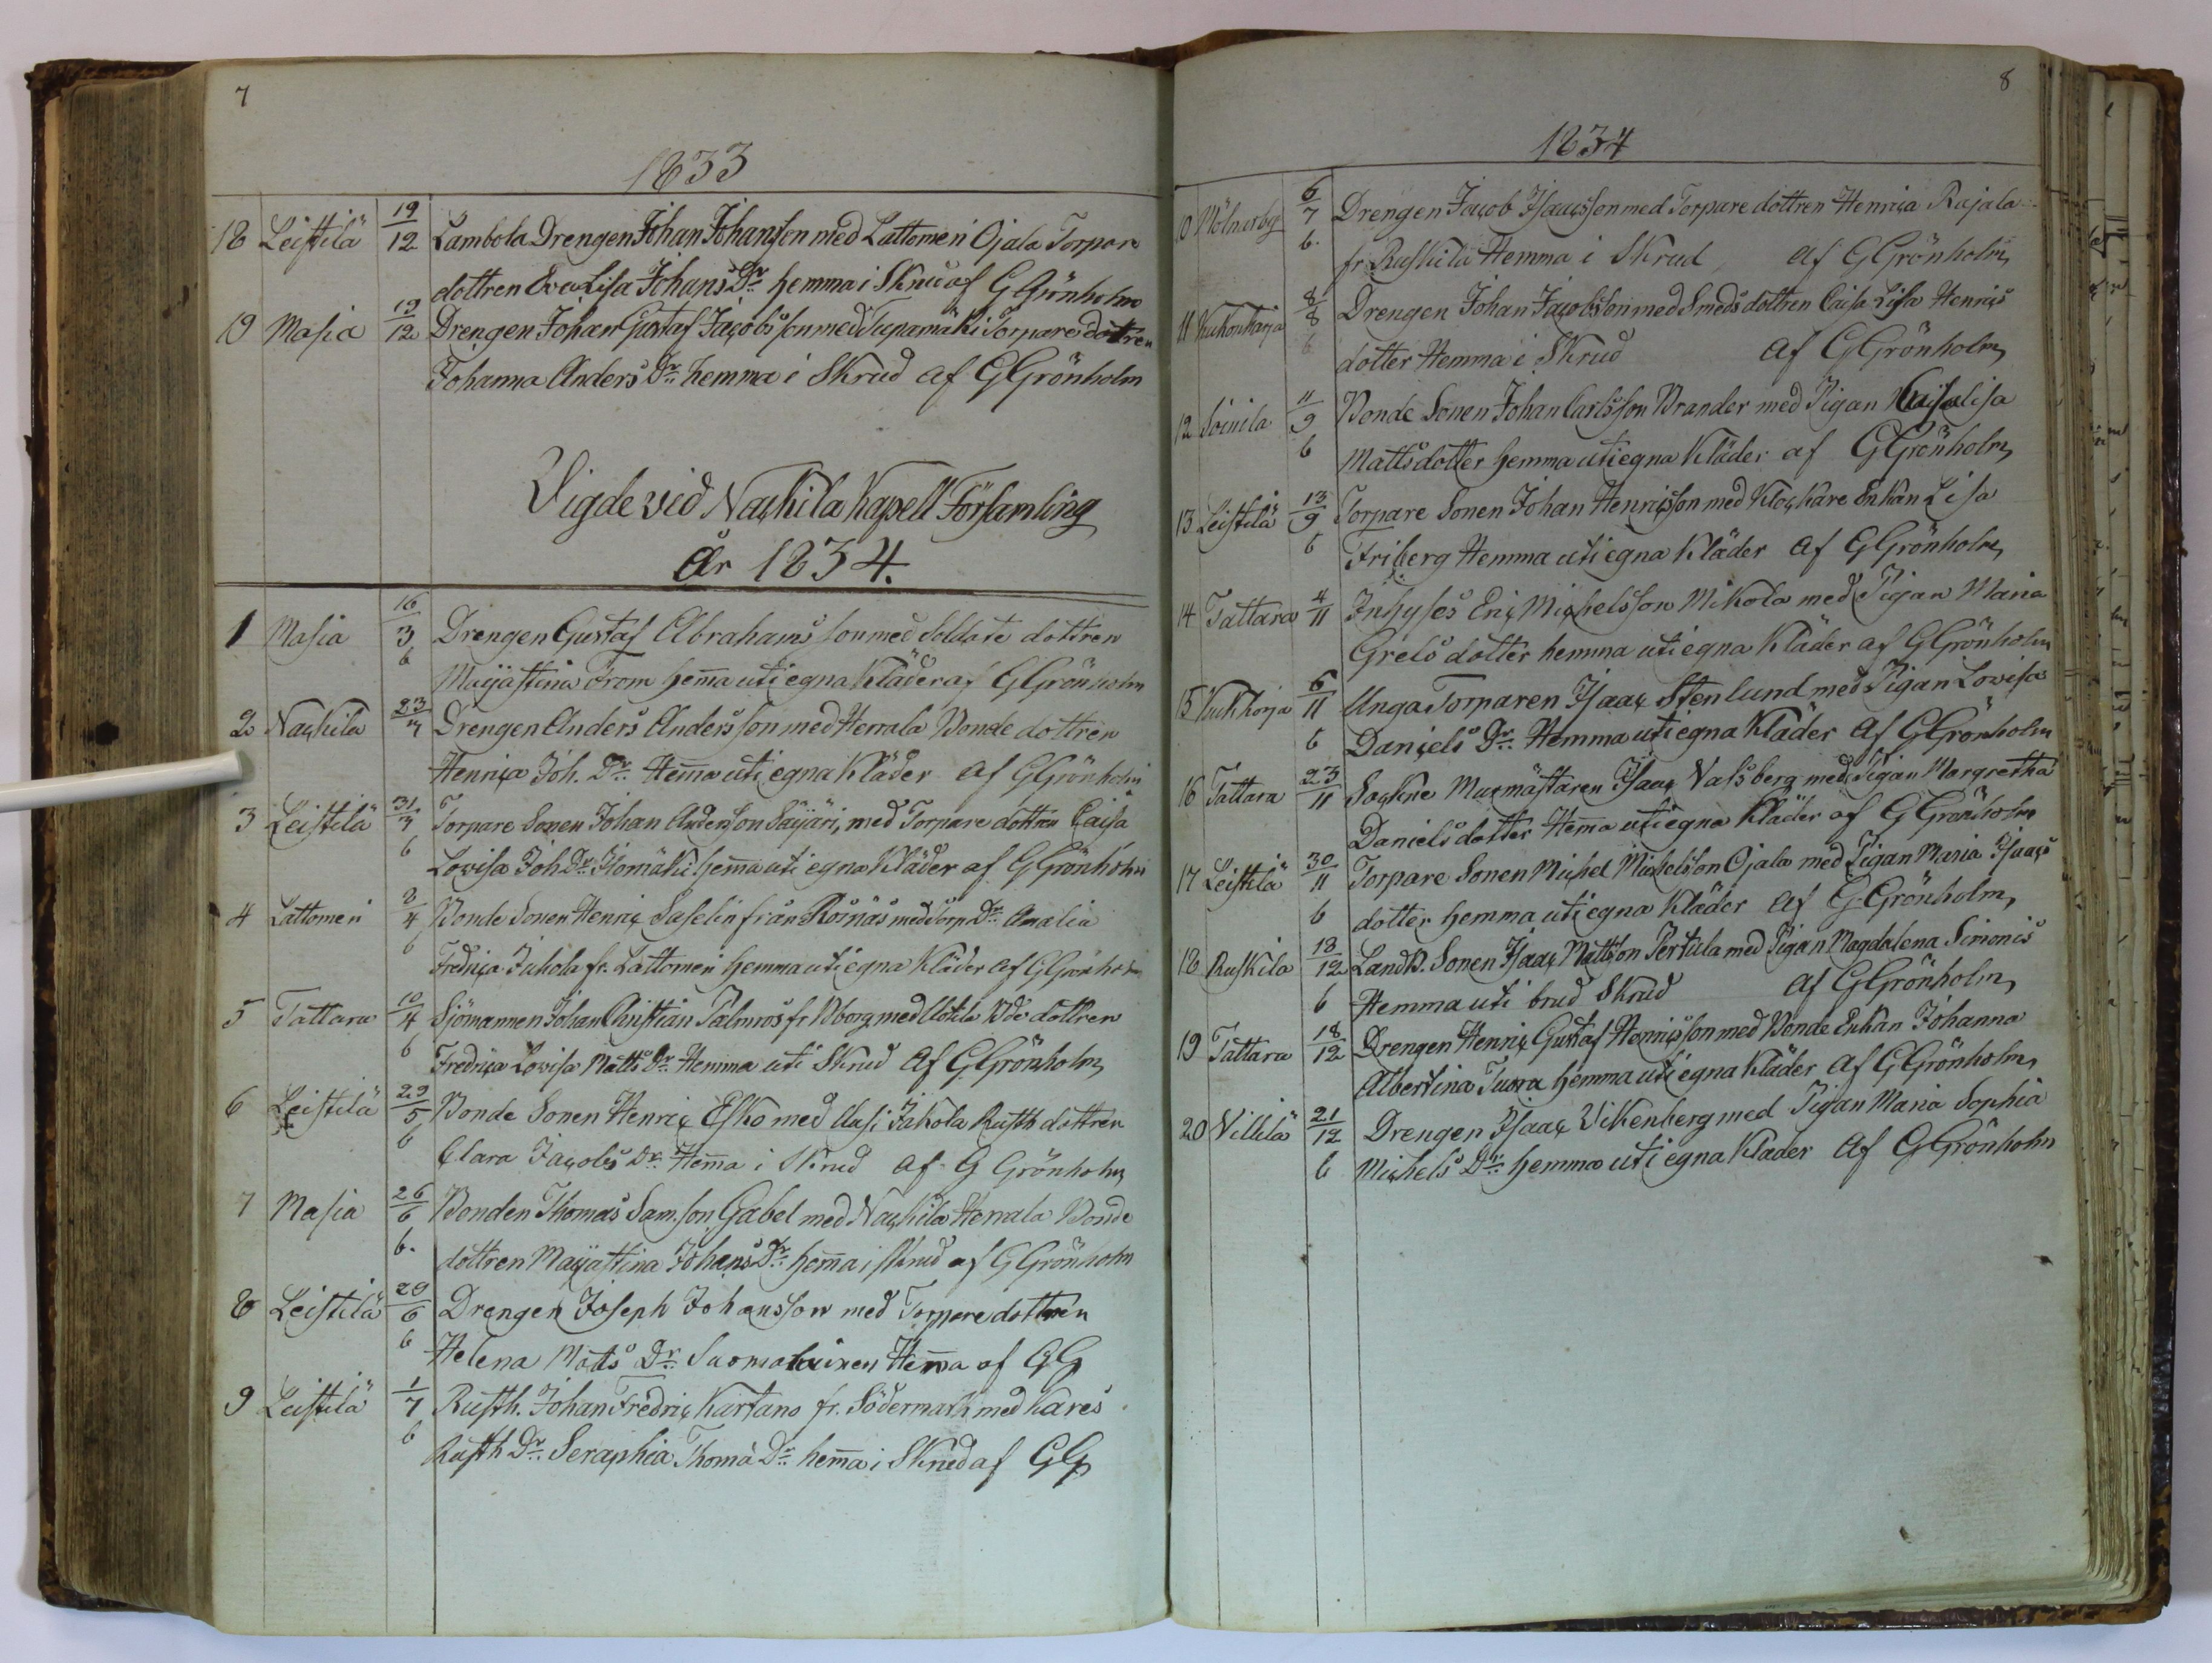 7
1833
18 Leistilä 19/12 Lambola Drengen Johan Johansson med Lattomeri Ojala Torpare
dottren Eva Lisa Johans Dr. hemma i Skrud af G Grönholm
19 Masia 19/12 Drengen Johan Gustaf Jacobsson med Tupamäki Torpare dottren
Johanna Anders Dr. hemma i Skrud af G Grönholm
Vigde vid Nackila Kapell Församling
År 1834.
1 Masia 16/3 Drengen Gustaf Abrahamsson med Soldate dottren
6 Maijastina Örom hema uti egna Kläder af G Grönholm
2 Nackila 23/3 Drengen Anders Andersson med Herrala Bonde dottren
Henrica Joh. Dr. Hema uti egna Kläder af G Grönholm
3 Leistilä 31/3 Torpare Sonen Johan Andersson Säijäri, med Torpare dottren Caisa
6 Lovisa Joh Dr. Isomäki hema uti egna Kläder af G Grönholm
4 Lattomeri 2/4 Bonde Sonen Henric Saselin från Rosnäs med Torp. Dr. Amalia
6 Fredrica Juhola fr. Lattomeri hemma uti egna Kläder af G Grönholm
5 Tattara 10/4 Sjömannen Johan Christian Palmros fr Bborg med Bde dottren
6 Fredrica Lovisa Matts Dr. Hemma uti Skrud af G Grönholm
6 Leistilä 29/5 Bonde Sonen Henric Esko med Uusi Jakola Rusth dottren
6 Clara Jacobs Dr. Hema i Skrud af G Grönholm
7 Masia 26/6 Bonden Thomas Sam.son Gabel med Nackila Herrala Bonde
6. dottren Maijastina Johans Dr. hema i skrud af G Grönholm
8 Leistilä 29/6 Drengen Joseph Johansson med Torpare dottren
6 Helena Matts Dr. Suomalainen Hema af GG
9 Leistilä 1/7 Rusth. Johan Fredric Kartano fr. Södermark med Kares
6 Rusth Dr. Seraphia Thoma Dr. hema i Skrud af GG
8
1834
10 Mölnarby 6/7 Drengen Jacob Isacsson med Torpare dottren Henrica Rajala
6. fr. Ruskila Hemma i Skrud af G Grönholm
11 Kukonharja 8/8 Drengen Johan Jacobsson med Smeds dottren Caisa Lisa Henrics
6 dotter Hemma i Skrud af G Grönholm
12 Soinila 11/9 Bonde Sonen Johan Carlsson Brander med Pigan Caisalisa
6 Mattsdotter hemma uti egna Kläder af G Grönholm
13 Leistilä 13/9 Torpare Sonen Johan Henricsson med Klockare Enkan Lisa
6 Friberg Hemma uti egna Kläder af G Grönholm
14 Tattara 4/11 Inhyses Eric Michelsson Mikola med Pigan Maria
Grels dotter hemma uti egna Kläder af G Grönholm
15 Kukkorja 6/11 Unga Torparen Isaac Stenlund med Pigan Lovisa
6 Daniels Dr. Hemma uti egna Kläder af G Grönholm
16 Tattara 23/11 Sockne Murmästaren Isaac Valsberg med Pigan Margretha
Danielsdotter Hema uti egna Kläder af G Grönholm
17 Leistilä 30/11 Torpare Sonen Michel Michelsson Ojala med Pigan Maria Isaacs
6 dotter hemma uti egna Kläder af G Grönholm
18 Ruskila 18/12 Landb. Sonen Isaac Mattsson Pertula med Pigan Magdalena Simonis
6 Hemma uti brud Skrud af G Grönholm
19 Tattara 18/12 Drengen Henric Gustaf Henricsson med Bonde Enkan Johanna
Albertina Tuora hemma uti egna Kläder af G Grönholm
20 Villilä 21/12 Drengen Isaac Vikenberg med Pigan Maria Sophia
6 Michels Dr. hemma uti egna Kläder af G Grönholm